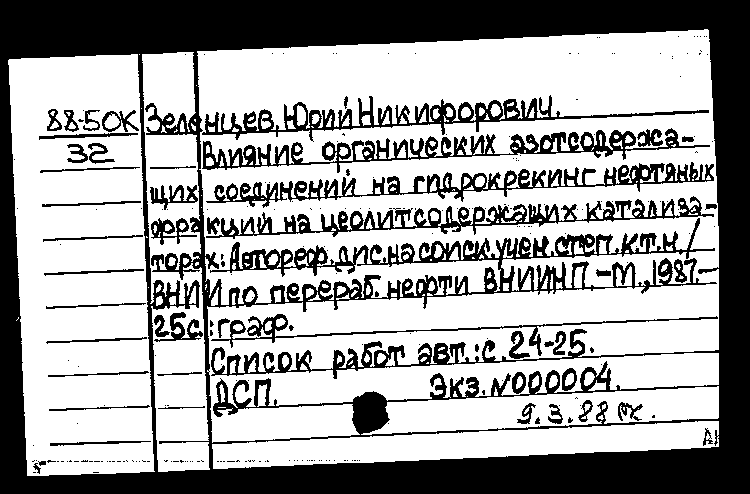 88-5ОК Зеленцев, Юрий Никифорович.
32 Влияние органических азотсодержа-
щих соединений на гидрокрекинг нефтяных
фракций на цеолитсодержащих катализа-
торах: Автореф. дис. на соиск. учен. степ. к.т.н. /
ВНИИ по перераб. нефти ВНИИНП. -М., 1987.-
25с.: граф.
Список работ авт.: с. 24-25.
ДСП. Экз. N000004.
9.3.88